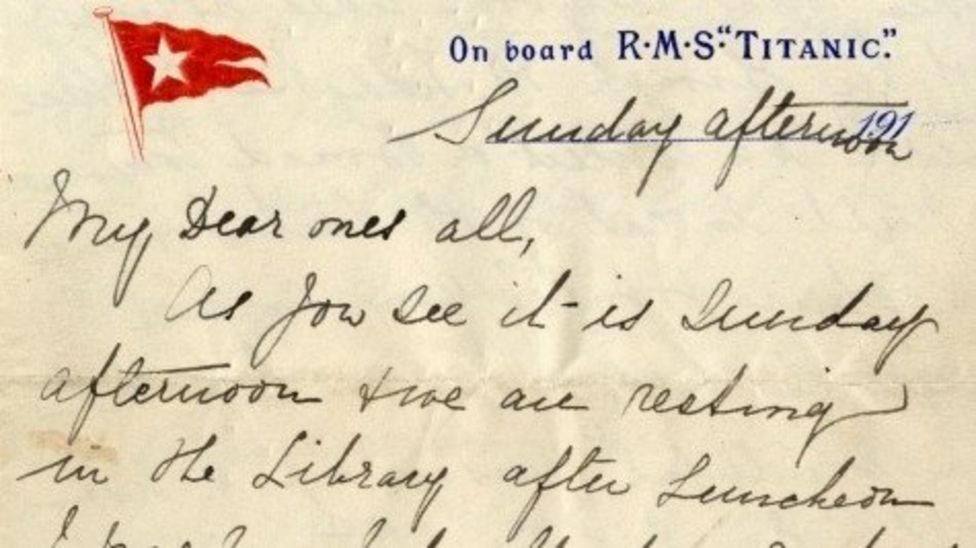 On board R·M·S·"TITANIC."
Sunday afternoon 191
My Dear ones all,
As you see it is Sunday
afternoon & we are resting
in the Library after Luncheon